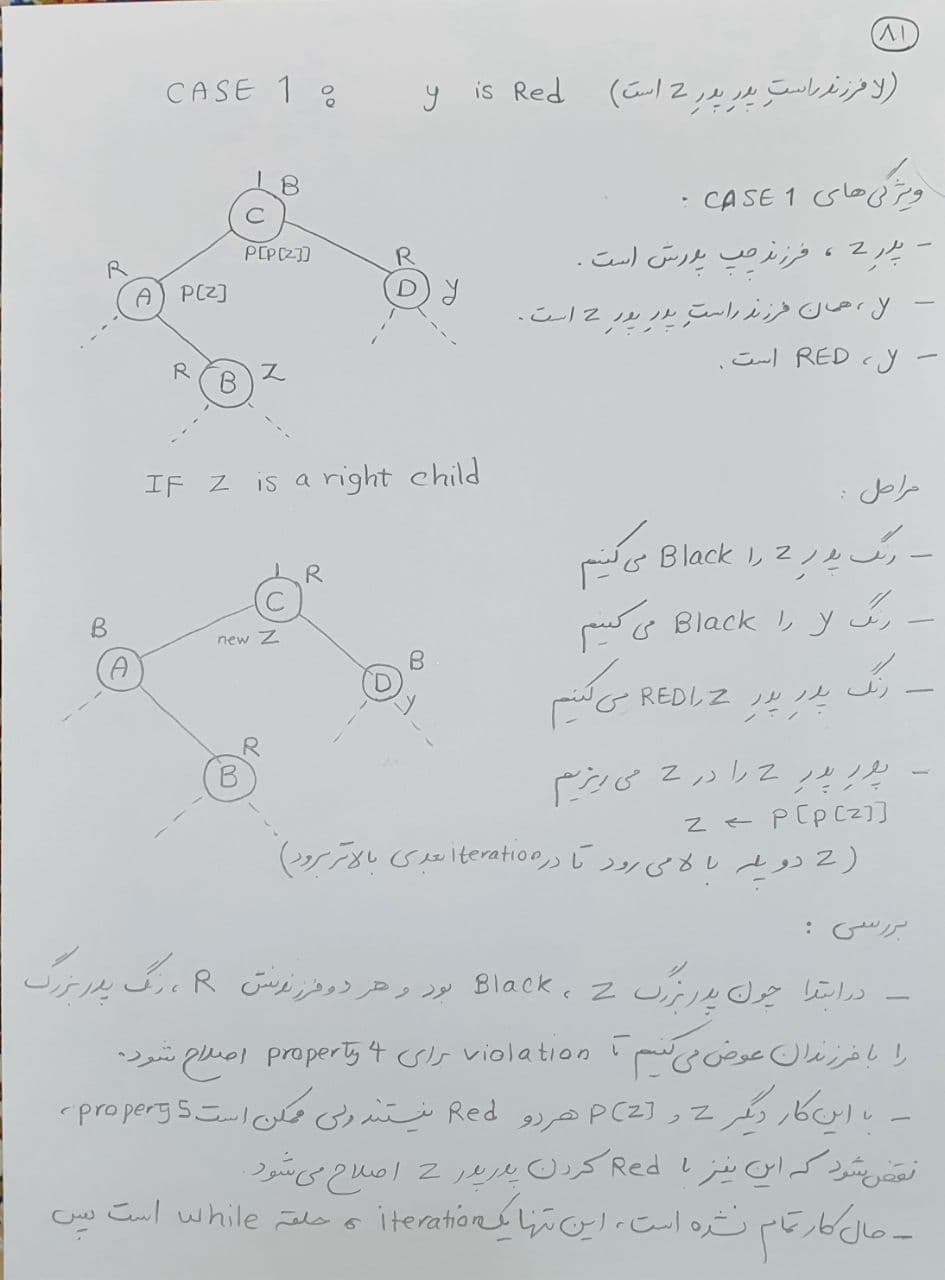 ۸۱
CASE 1 : y is Red (y فرزند راستِ پدرِ پدرِ z است)
ویژگی های CASE 1 :
- پدرِ z ، فرزند چپ پدرش است.
- y ، همان فرزند راستِ پدرِ پدرِ z است.
- y ، RED است.
B
C
P[P[z]]
R
A
P[z]
R
D
y
R
B
z
IF z is a right child
مراحل :
- رنگ پدرِ z را Black می کنیم
- رنگ y را Black می کنیم
- رنگ پدرِ پدرِ z را RED می کنیم
- پدرِ پدرِ z را در z می ریزیم
z ← P[P[z]]
(z دو پله بالا می رود تا در iteration بعدی بالاتر برود)
R
C
new z
B
A
B
D
y
R
B
بررسی :
- در ابتدا چون پدربزرگ z ، Black بود و هر دو فرزندش R ، رنگ پدربزرگ
را با فرزندان عوض می کنیم تا violation برای property 4 اصلاح شود.
- با این کار دیگر z و P[z] هر دو Red نیستند ولی ممکن است propery 5 ،
نقض شود که این نیز با Red کردن پدرِ پدر z اصلاح می شود.
- حال کار تمام نشده است، این تنها یک iteration ه حلقه while است پس